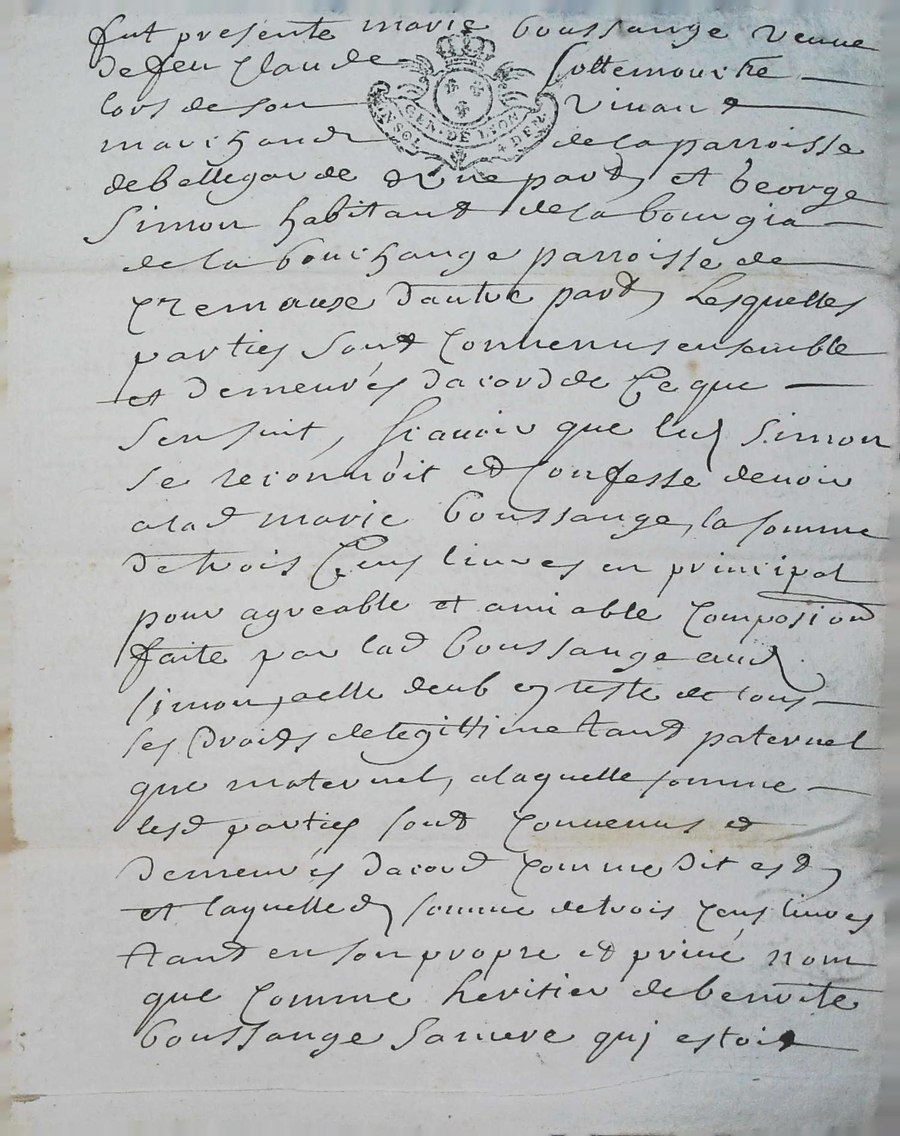 fut presente marie boussange veuve
de feu Claude Sottemouche
lors de son vivant
GEN. DE LYON
marchand de la parroisse
de bellegarde d'une part, et George
Simon habitant de la bourgia
de la bouchange parroisse de
Cremause d'autre part, Lesquelles
parties sont Convenus ensemble
et demeurés dacord de Ce que
sensuit, scavoir que led Simon
se reconnoit et Confesse devoir
a lad marie boussange, la somme
de trois Cens livres en principal
pour agreable et amiable Composion
faite par lad boussange aud
Simon, a elle deub en reste de tous
ses droits de legittime tant paternel
que maternel, a laquelle somme
lesd parties sont Convenus et
demeurés dacord Comme dit est,
et laquelle d, somme de trois Cens livres
tant en son propre et privé nom
que Comme heritier de benoite
boussange sa mere quj estoit